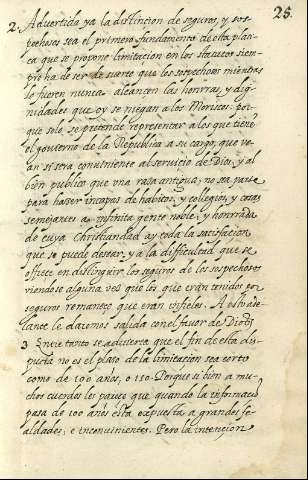 25.
2. Advertida ya la distincion de seguros, y sos-
pechosos sea el primero fundamento de esta plati-
ca que se propone limitacion en los statutos siem-
pre ha de ser de suerte que los sospechosos mientras
lo fueren nunca alcancen las honrras, y dig-
nidades que oy se niegan a los Moriscos por-
que solo se pretende representar a los que tiene
el govierno de la Republica a su cargo, que ve-
an si sera conviniente al servicio de Dios, y al
bien publico que una rasa antigua, no sea parte
para hacer incapaz de habitos, y collegios, y cosas
semejantes a infinita gente noble, y honrrada
de cuya Christiandad ay toda la satisfacion
que se puede desear, y a la difficultad que se
offrece en distinguir los seguros de los sospechosos
viendose alguna vez que los que eran tenidos por
seguros remanece que eran infieles. A esto ade-
lante le daremos salida con el favor de Dios
3 Entre tanto se advierta que el fin de esta dis-
puta no es el plaso de la limitacion sea corto
como de 100 años, o 150. Porque si bien a mu-
chos cuerdos les parece que quando la informacion
pasa de 100 años esta expuesta a grandes fe-
aldades, e inconvinientes. Pero la intencion